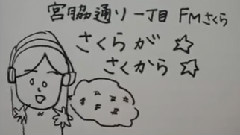 宮脇通り一丁目 FMさくら
さくらが☆
さくから☆